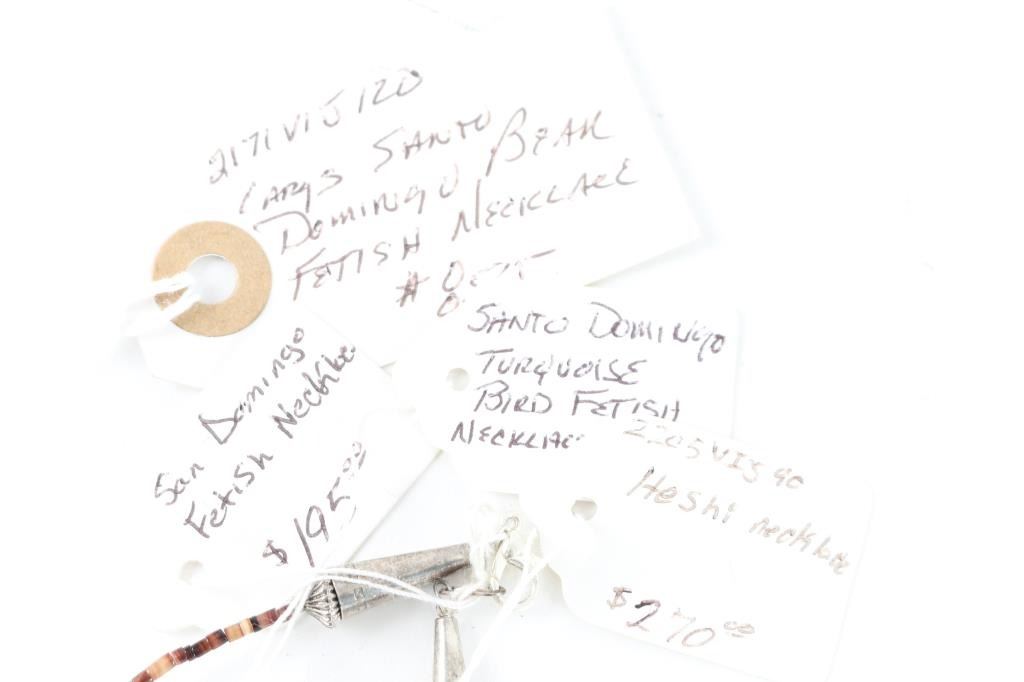 2171VIJ120
Large SANTO
DOMINGO BEAR
FETISH NECKLACE
SANTO DOMINGO
TURQUOISE
BIRD FETISH
NECKLACE
San Domingo
Fetish Necklace
$195.00
2205VIJ90
Heshi necklace
$270.00